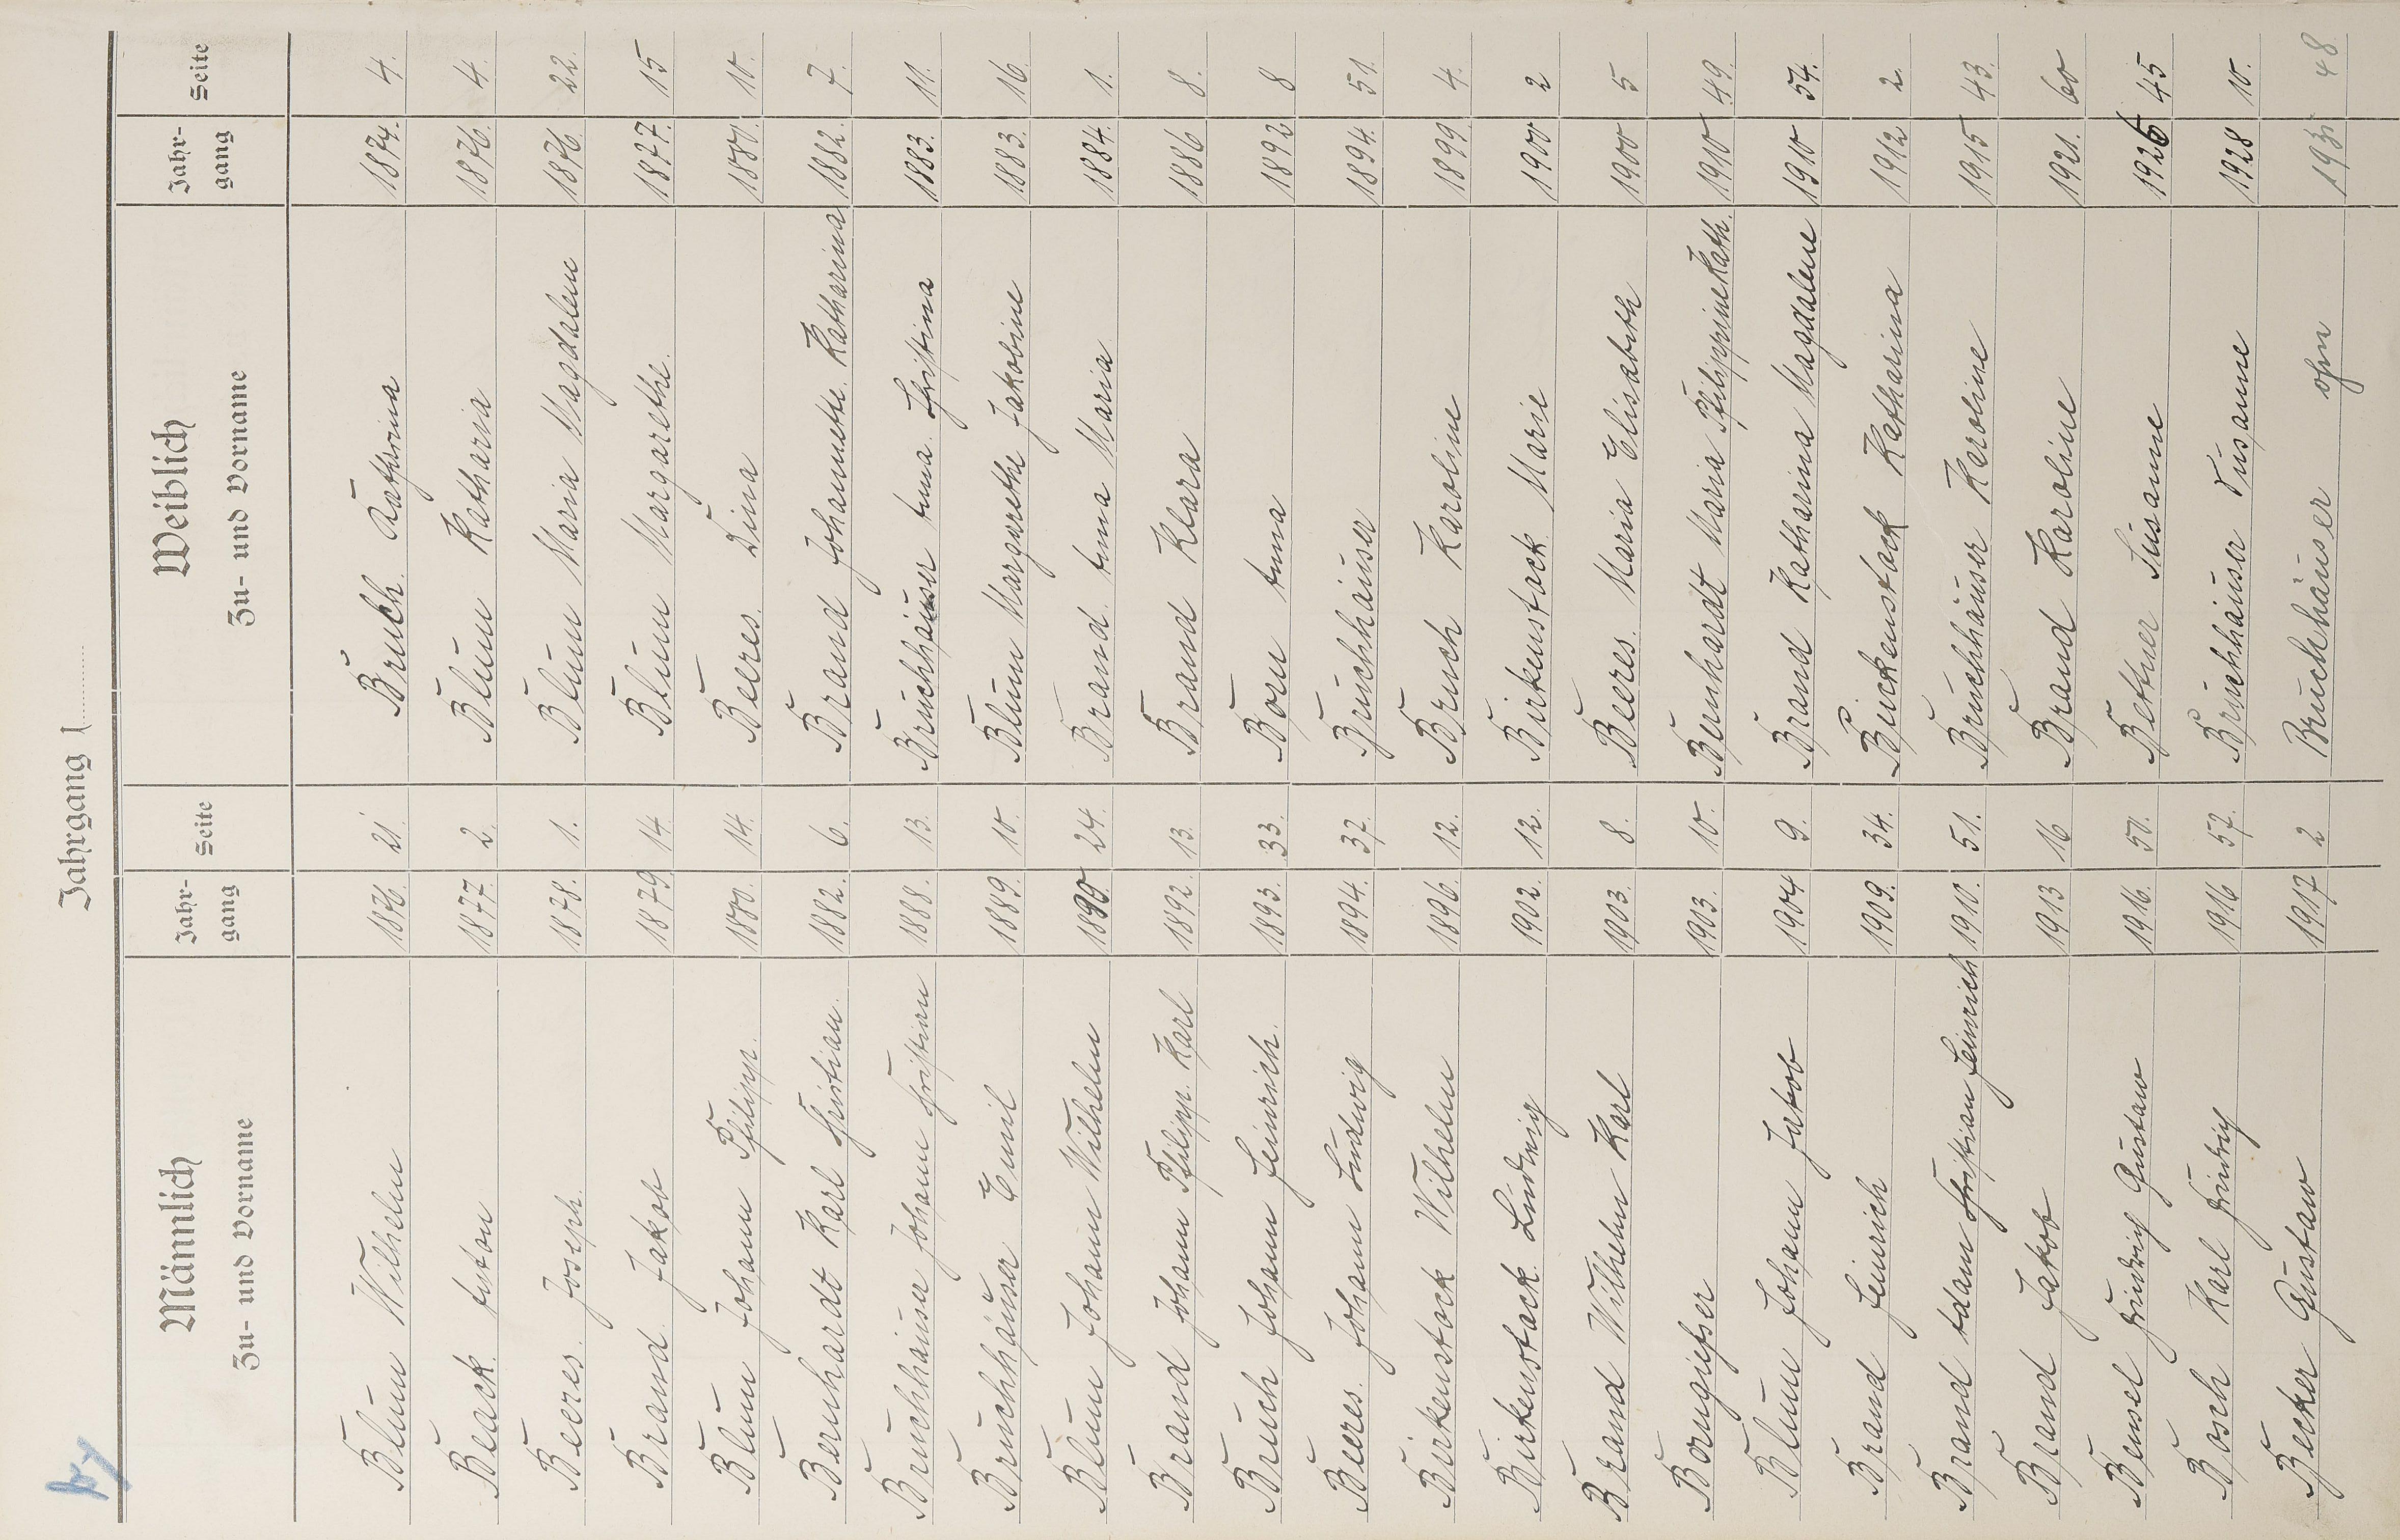 Jahrgang 1
Männlich
Zu- und Vorname
Jahr-
gang
Seite
Weiblich
Zu- und Vorname
Jahr-
gang
Seite
Blum Wilhelm 1876. 21 Bruch Katharina 1874. 4.
Beack Anton 1877. 2. Blum Katharia 1876. 4.
Beeres. Joseph. 1878. 1. Blum Maria Magdalen 1876. 22.
Brand. Jakob 1879 14. Blum Margarethe. 1877. 15
Blum Johann Philipp. 1880. 14. Beeres. Dina 1880. 10.
Bernhardt Karl Christian. 1882. 6. Brand Johannette Katharina 1882. 7.
Bruchhäuser Johann Christian 1888. 13. Bruchhäuser Anna Christina 1883. 11.
Bruchhäuser Emil 1889. 10. Blum Margarethe Jakobine 1883. 16.
Blum Johann Wilhelm 1890. 24. Brand. Anna Maria 1884. 1.
Brand Johann Philipp. Karl 1892. 13. Brand Klara 1886 8.
Bruch Johann Heinrich. 1893. 33. Born Anna 1892 8
Beeres. Johann Ludwig 1894. 37. Bruchhäuser 1894. 51.
Birkenstock Wilhelm 1896. 12. Bruch Karoline 1899. 4.
Birkenstock Ludwig 1902. 12. Birkenstock Marie 1900 2
Brand Wilhelm Karl 1903. 8. Beeres. Maria Elisabeth 1900 5
Borngießer 1903. 10. Bernhardt Maria Philippine Kath. 1910 49.
Blum Johann Jakob 1904 9. Brand Katharina Magdalene 1910 54.
Brand Heinrich 1909. 34. Birkenstock Katharina 1912 2.
Brand Adam Christian Heinrich 1910. 51. Bruchhäuser Karoline 1915 43.
Brand Jakob 1913 16 Brand Karoline 1921. 60
Bensel Friedrich Gustav 1916. 50. Bettner Susanne 1926 45
Bosch Karl Friedrich 1916 57. Bruchhäuser Susanne 1928 10.
Becker Gustav 1917 2 Bruchhäuser ohne 48